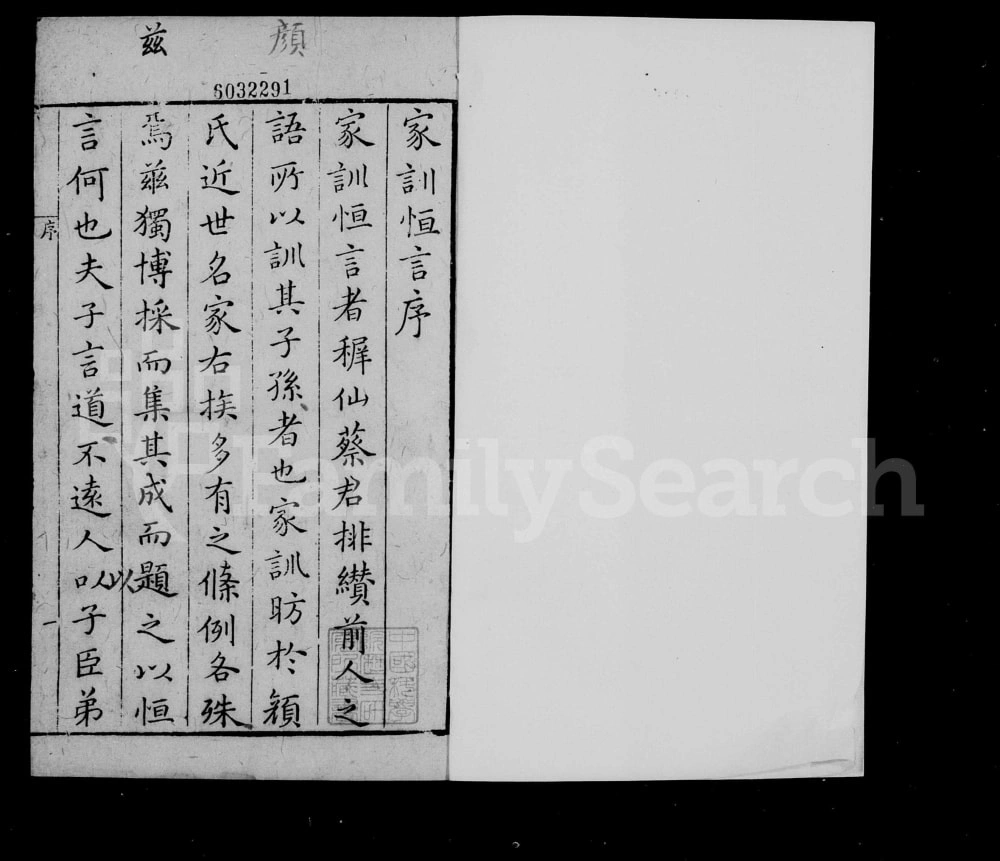 顔
茲
6032291
家訓恒言序
家訓恒言者穉仙蔡君排纉前人之
語所以訓其子孫者也家訓昉於顔
氏近世名家右族多有之條例各殊
焉茲獨博採而集其成而題之以恒
言何也夫子言道不遠人以以子臣弟
序
一
FamilySearch